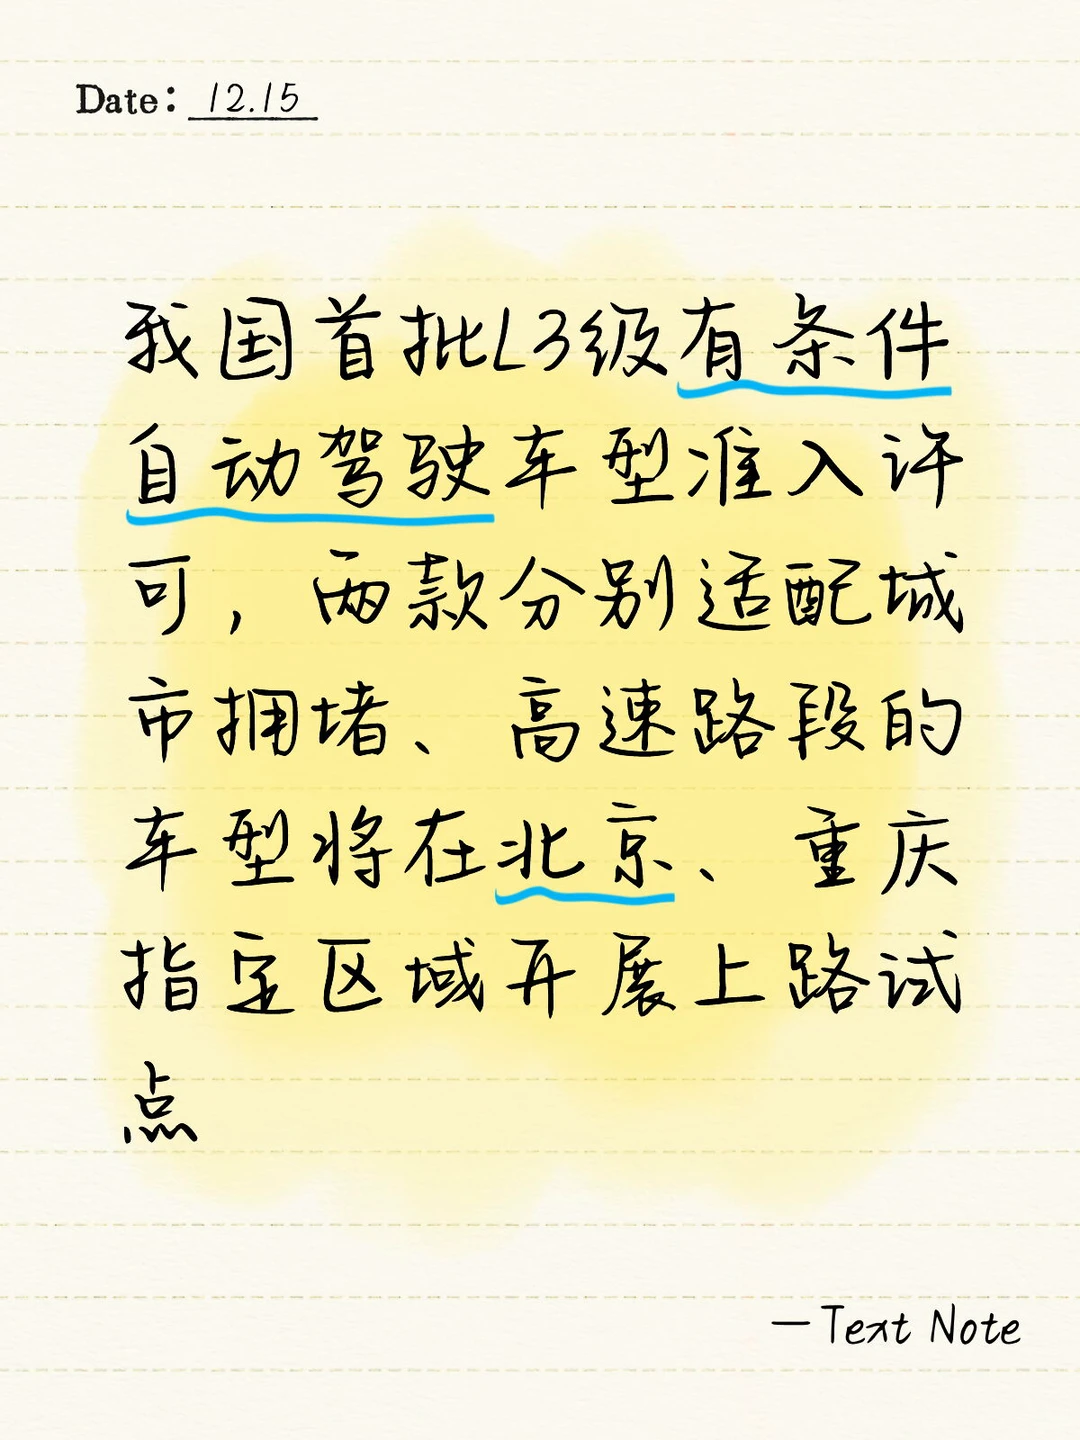 Date: 12.15
我国首批L3级有条件
自动驾驶车型准入许
可，两款分别适配城
市拥堵、高速路段的
车型将在北京、重庆
指定区域开展上路试
点
—Text Note